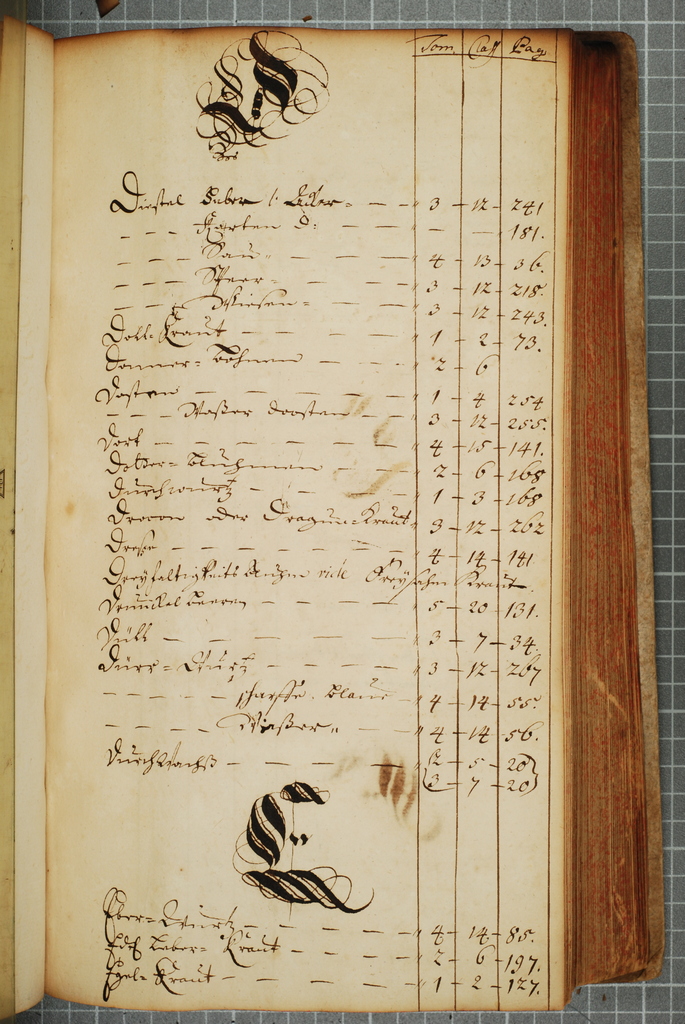 Tom. Class Pag
D
Diestel Haber /: - - " 3 - 12 - 241
- - - Karten d: - - - " - - 181.
- - - Sau " - - - " 4 - 13 - 36.
- - - Speer - - - - " 3 - 12 - 218.
- - - Wiesen - - - - " 3 - 12 - 243.
Doll-Kraut - - - - " 1 - 2 - 73.
Donner-bohnen - - - " 2 - 6
Dosten - - - - - - " 1 - 4 - 254
- - - Waßer dosten - - " 3 - 12 - 255.
Dort - - - - - - " 4 - 15 - 141.
Dotter-bluhmen - - - " 2 - 6 - 168
Durchwurtz - - - - " 1 - 3 - 168
Dracon oder Dragun-Kraut " 3 - 12 - 262
Drespe - - - - - - " 4 - 14 - 141
Dreyfaltigkeits bluhm vide Freysahm Kraut.
Drunckel beeren - - - - " 5 - 20 - 131.
Düll - - - - - - " 3 - 7 - 34.
Dürr-Wurtz - - - - " 3 - 12 - 267
- - - - scharffe. blaue - " 4 - 14 - 55.
- - - - Waßer " - - - " 4 - 14 - 56.
Durchwachß - - - - - (2 - 5 - 20)
(3 - 7 - 20)
E
Eber-Wurtz - - - - " 4 - 14 - 85.
Edel Leber-Kraut - - - " 2 - 6 - 197.
Egel-Kraut - - - - " 1 - 2 - 127.